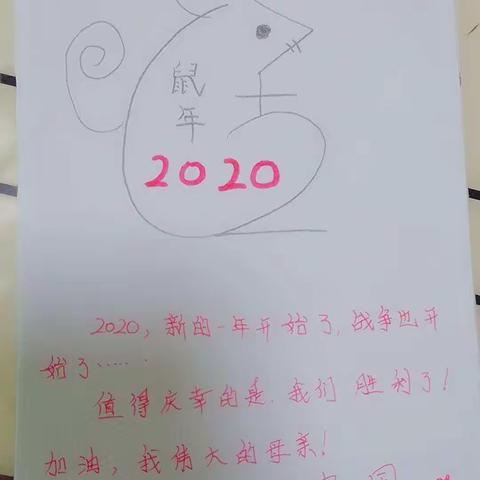 鼠
年
2020
2020，新的一年开始了，战争也开
始了……
值得庆幸的是，我们 胜利了！
加油，我伟大的母亲！